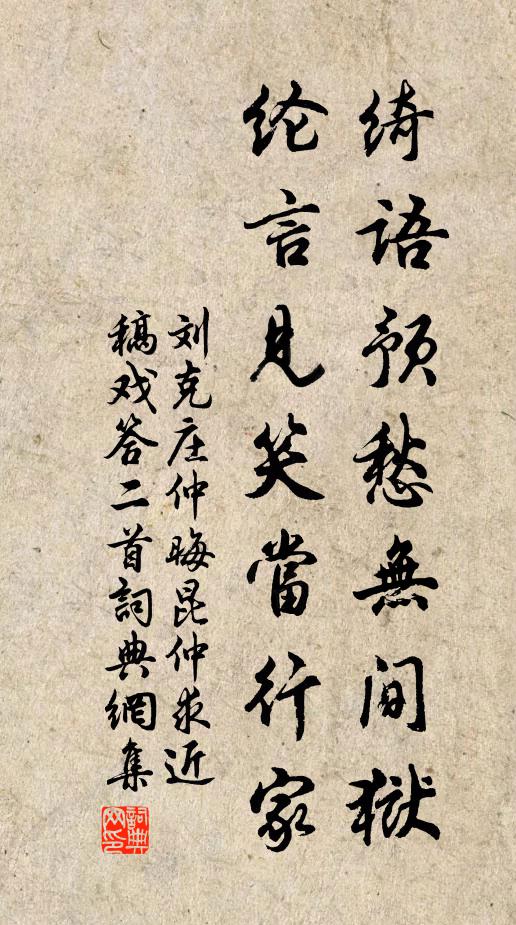 绮语预愁無间狱
纶言见笑當行家
刘克庄仲晦昆仲求近
稿戏答二首詞典網集
詞典网印